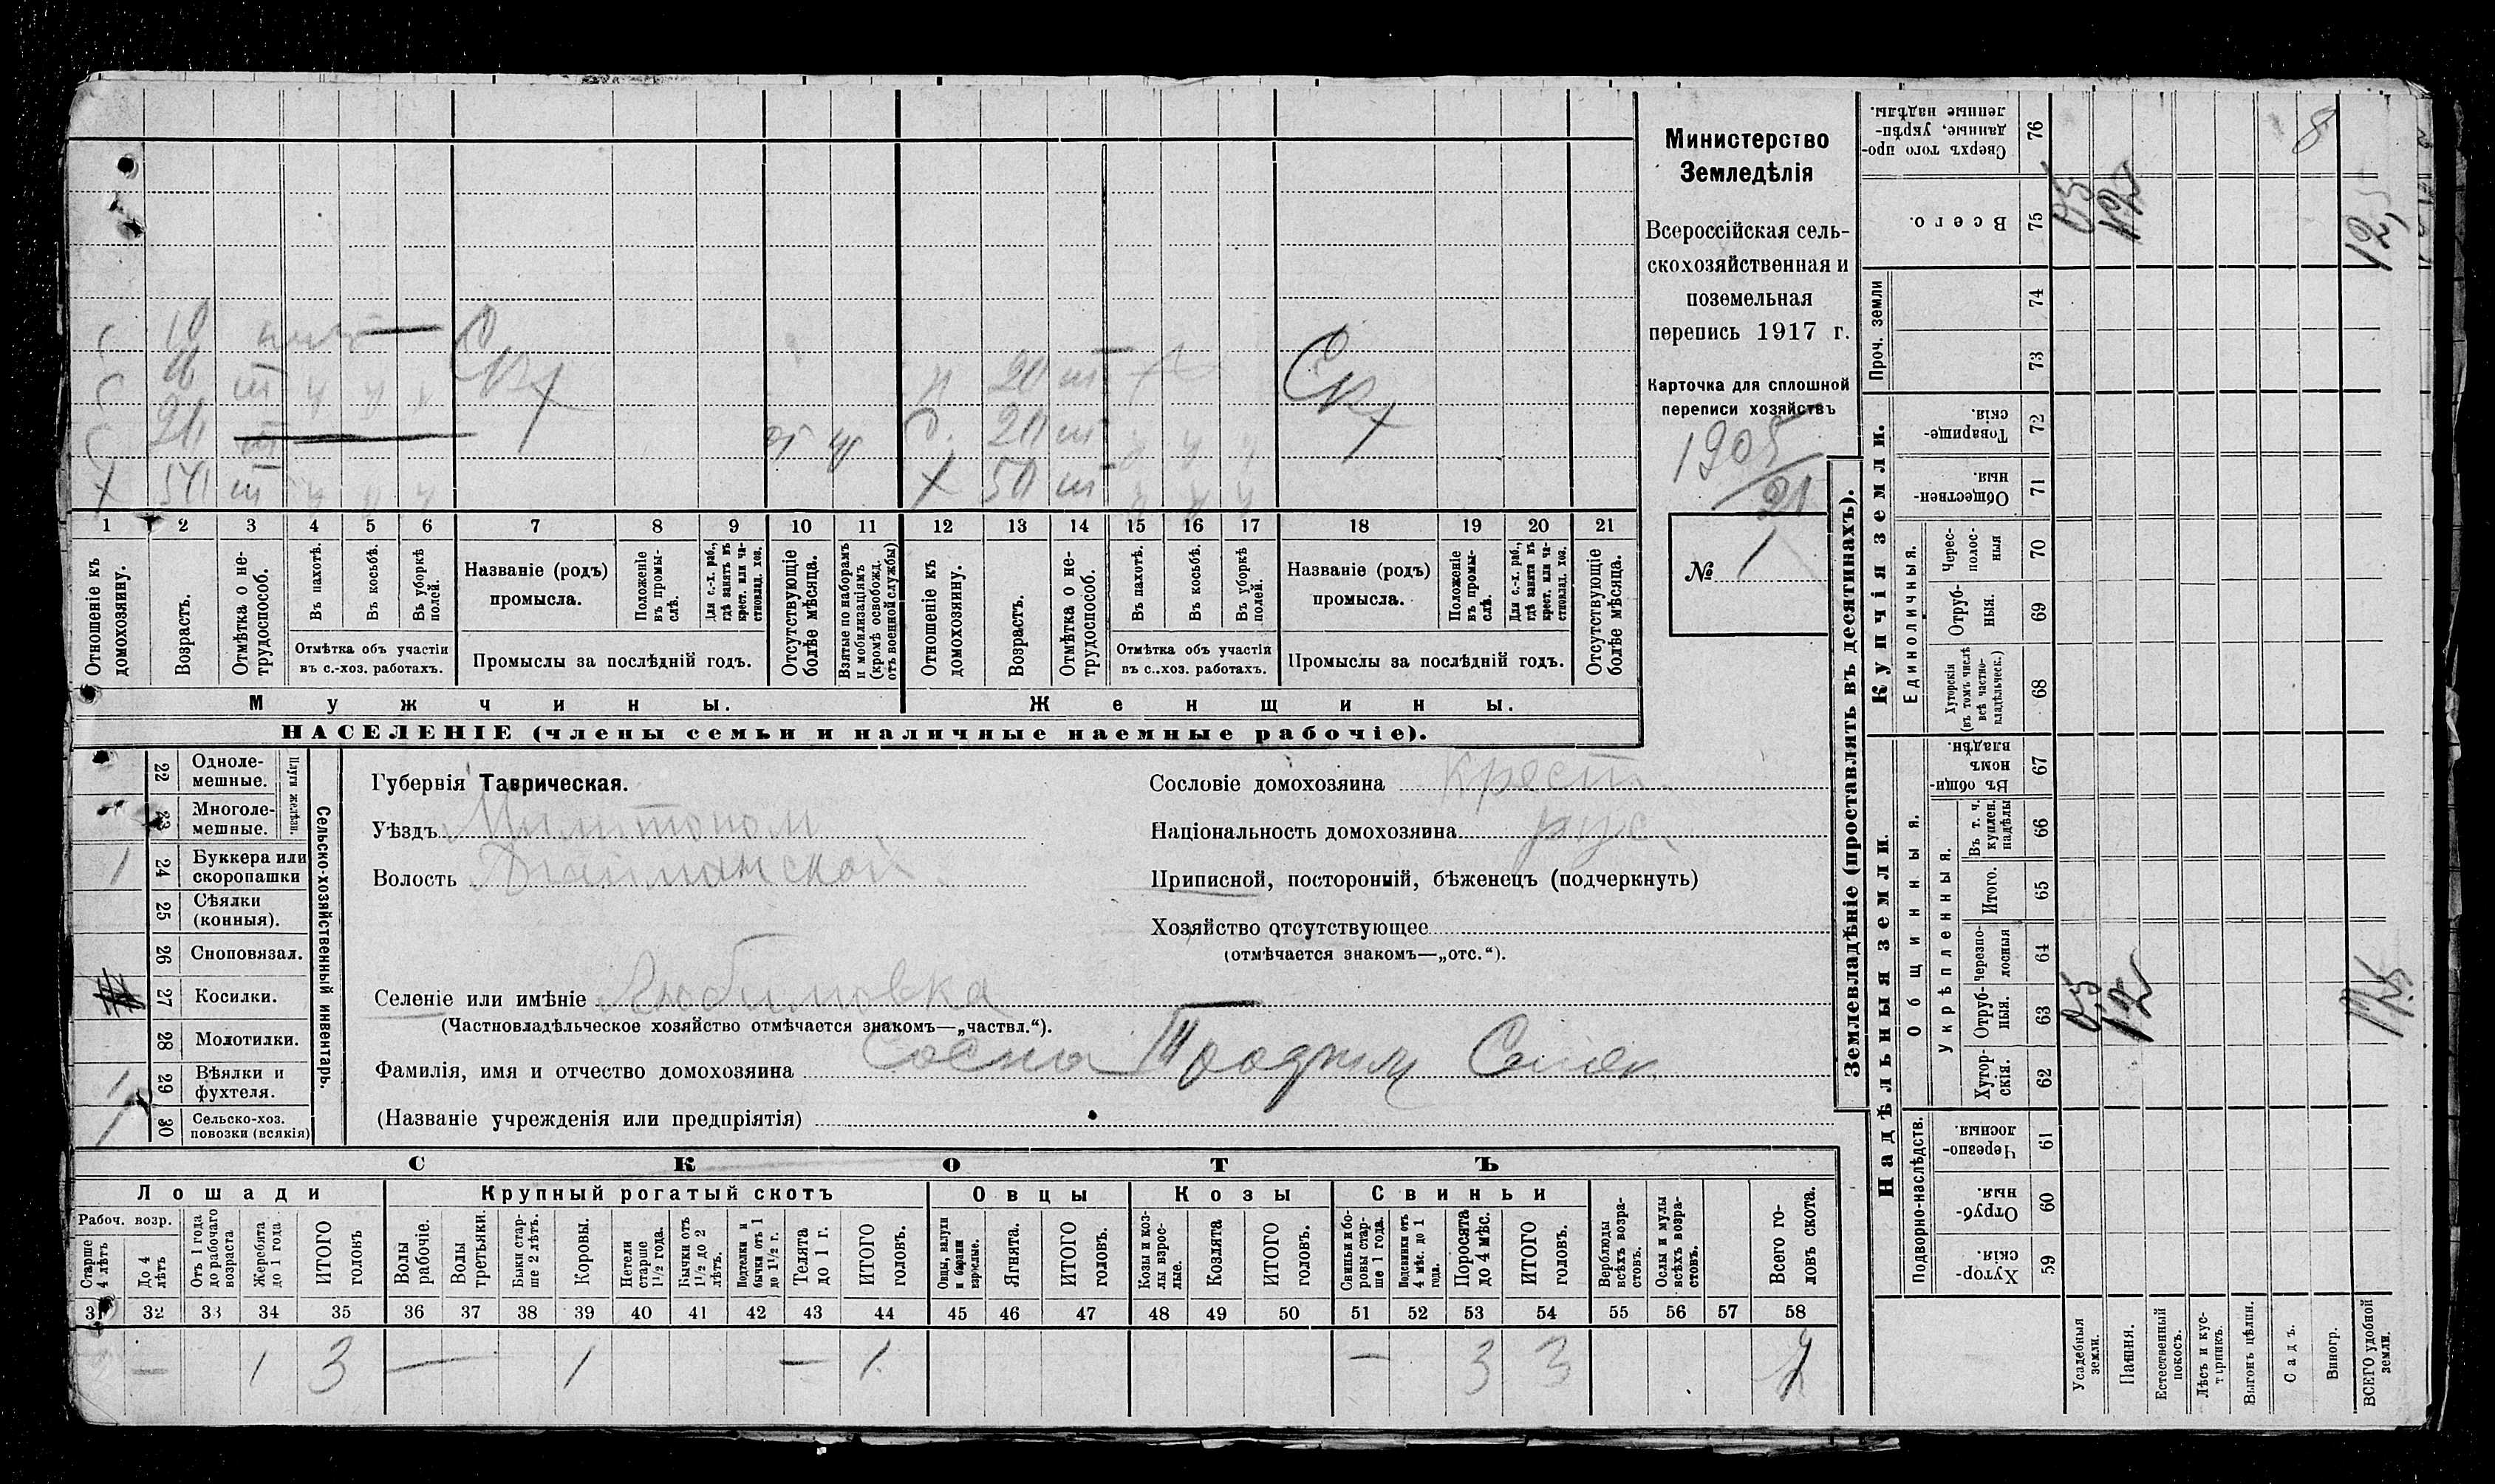 Министерство
Земледѣлія
Всероссійская сель-
скохозяйственная и
поземельная
перепись 1917 г.
Карточка для сплошной
переписи хозяйствъ
1905
21
№ 1
10
16
Скх
20 ш
Скх
21
20 ш
50 ш
50 ш
1 2 3 4 5 6 7 8 9 10 11 12 13 14 15 16 17 18 19 20 21
Отношеніе къ домохозяину.
Возрастъ.
Отмѣтка о не-трудоспособ.
Въ пахотѣ.
Въ косьбѣ.
Въ уборкѣ полей.
Отмѣтка объ участіи
въ с.-хоз. работахъ.
Названіе (родъ)
промысла.
Положеніе въ промы-слѣ.
Для с.-х. раб., гдѣ занятъ въ крест. или ча-стновлад. хоз.
Промыслы за послѣдній годъ.
Отсутствующіе болѣе мѣсяца.
Взятые по наборамъ и мобилизаціямъ (кромѣ освобожд. отъ военной службы)
Отношеніе къ домохозяину.
Возрастъ.
Отмѣтка о не-трудоспособ.
Въ пахотѣ.
Въ косьбѣ.
Въ уборкѣ полей.
Отмѣтка объ участіи
въ с.-хоз. работахъ.
Названіе (родъ)
промысла.
Положеніе въ промы-слѣ.
Для с.-х. раб., гдѣ занята въ крест. или ча-стновлад. хоз.
Промыслы за послѣдній годъ.
Отсутствующіе болѣе мѣсяца.
Мужчины.
Женщины.
НАСЕЛЕНІЕ (члены семьи и наличные наемные рабочіе).
Сельско-хозяйственный инвентарь.
Плуги желѣзн.
22 Одноле-мешные.
23 Многоле-мешные.
1 24 Буккера или скоропашки
25 Сѣялки (конныя).
26 Сноповязал.
27 Косилки.
28 Молотилки.
1 29 Вѣялки и фухтеля.
1 30 Сельско-хоз. повозки (всякія)
Губернія Таврическая.
Уѣздъ
Волость
Селеніе или имѣніе Любимовка
(Частновладѣльческое хозяйство отмѣчается знакомъ—„частвл.“).
Фамилія, имя и отчество домохозяина
(Названіе учрежденія или предпріятія)
Сословіе домохозяина крест.
Національность домохозяина рус.
Приписной, посторонній, бѣженецъ (подчеркнуть)
Хозяйство отсутствующее
(отмѣчается знакомъ—„отс.“).
СКОТЪ
Лошади
Рабоч. возр.
Старше 4 лѣтъ
До 4 лѣтъ
Отъ 1 года до рабочаго возраста
Жеребята до 1 года
ИТОГО головъ
Крупный рогатый скотъ
Волы рабочіе.
Волы третьяки.
Быки стар-ше 2 лѣтъ.
Коровы.
Нетели старше 1½ года.
Бычки отъ 1½ до 2 лѣтъ.
Подтелки и бычки отъ 1 до 1½ г.
Телята до 1 г.
ИТОГО головъ.
Овцы
Овцы, валухи и бараны взрослые.
Ягнята.
ИТОГО головъ.
Козы
Козы и коз-лы взрос-лые.
Козлята
ИТОГО головъ.
Свиньи
Свиньи и бо-ровы стар-ше 1 года.
Подсвинки отъ 4 мѣс. до 1 года.
Поросята до 4 мѣс.
ИТОГО головъ.
Верблюды всѣхъ возра-стовъ.
Ослы и мулы всѣхъ возра-стовъ.
Всего го-ловъ скота.
31 32 33 34 35 36 37 38 39 40 41 42 43 44 45 46 47 48 49 50 51 52 53 54 55 56 57 58
— 1 3 — 1 — 1 — 3 3 7
Землевладѣніе (проставлять въ десятинахъ).
Купчія земли.
Надѣльныя земли.
Сверхъ того про-данные, укрѣп-ленные надѣлы. 76
Всего. 75
Проч. земли 74 73
Товарище-скія. 72
Обществен-ныя. 71
Единоличныя.
Черес-полос-ныя 70
Отруб-ныя. 69
Хуторскія (въ томъ числѣ всѣ частно-владѣльческ.) 68
Общинныя.
Въ общи-номъ владѣн. 67
Укрѣпленныя.
Въ т. ч. куплен. надѣлы 66
Итого. 65
Черезпо-лосныя 64
Отруб-ныя. 63
Хутор-скія. 62
Подворно-наслѣдств.
Черезпо-лосныя. 61
Отруб-ныя. 60
Хутор-скія. 59
Усадебныя земли.
Пашня.
Естественный покосъ.
Лѣсъ и кус-тарникъ.
Выгонъ цѣлин.
Садъ.
Виногр.
ВСЕГО удобной земли.
05
12
8
12,5
05
12
12,5